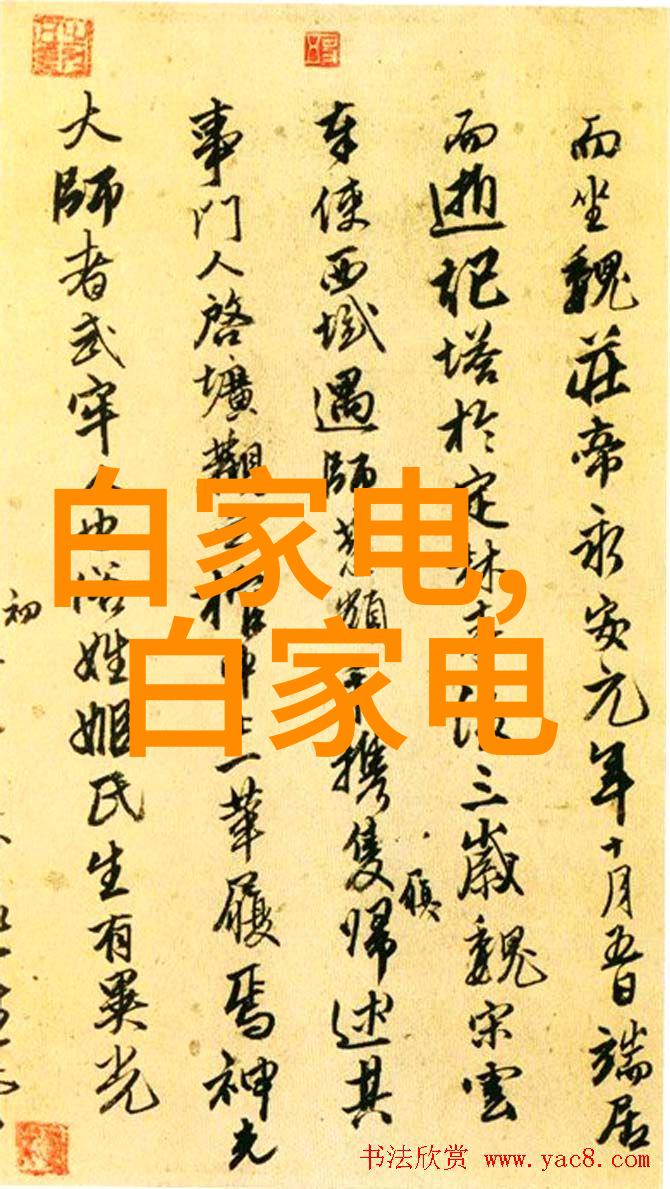 而坐魏莊帝永安元年十月五日端居
而逝記塔於定林三歲魏宋雲
奉使西域遇師葱携隻歸述其
履
事門人啓壙觀一革履焉神光
大師者武牢人也俗姓姬氏生有異光
初
白家电,
白家电
书法欣赏 www.yac8.com